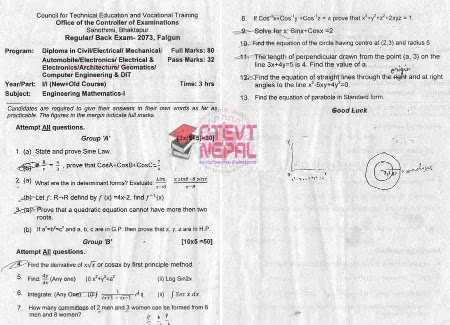 Council for Technical Education and Vocational Training
Office of the Controller of Examinations
Sanothimi, Bhaktapur
Regular/ Back Exam- 2073, Falgun
Program: Diploma in Civil/Electrical/ Mechanical/ Full Marks: 80
Automobile/Electronics/ Electrical & Pass Marks: 32
Electronics/Architecture/ Geomatics/
Computer Engineering & DIT
Year/Part: I/I (New+Old Course) Time: 3 hrs
Subject: Engineering Mathematics-I
Candidates are required to give their answers in their own words as far as
practicable. The figures in the margin indicate full marks.
Attempt All questions.
Group 'A'
1. (a) State and prove Sine Law.
, prove that CosA+CosB+CosC=
2. (a) What are the in determinant forms? Evaluate:
(b) Let f: R→R defind by f (x) =4x-2, find f⁻¹(x)
3. (a) Prove that a quadratic equation cannot have more then two
roots.
(b) If aˣ=bʸ=cᶻ and a, b, c are in G.P. then prove that x, y, z are in H.P.
Group 'B' [10x5 =50]
Attempt All questions.
4. Find the derivative of x√x or cosax by first principle method.
5. Find: dy/dx (Any one) (i) x²+y²=a² (ii) Log Sin2x
6. Integrate: (Any One) (ii) ∫ Sec x dx
7. How many committees of 2 men and 3 women can be formed from 6
men and 8 women?
8. If Cos⁻¹x+Cos⁻¹y +Cos⁻¹z = π prove that x²+y²+z²+2xyz = 1.
9. Solve for x: Sinx+Cosx =2
10. Find the equation of the circle having centre at (2,3) and radius 5
11. The length of perpendicular drawn from the point (a, 3) on the
line 3x+4y=5 is 4. Find the value of a.
origin
12. Find the equation of straight lines through the right and at right
angles to the line x²-5xy+4y²=0
13. Find the equation of parabola in Standard form.
Good Luck
CTEVT
NEPAL